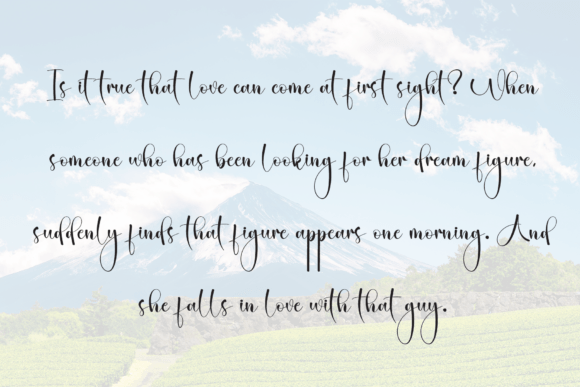 Is it true that love can come at first sight? When
someone who has been looking for her dream figure,
suddenly finds that figure appears one morning. And
she falls in love with that guy.